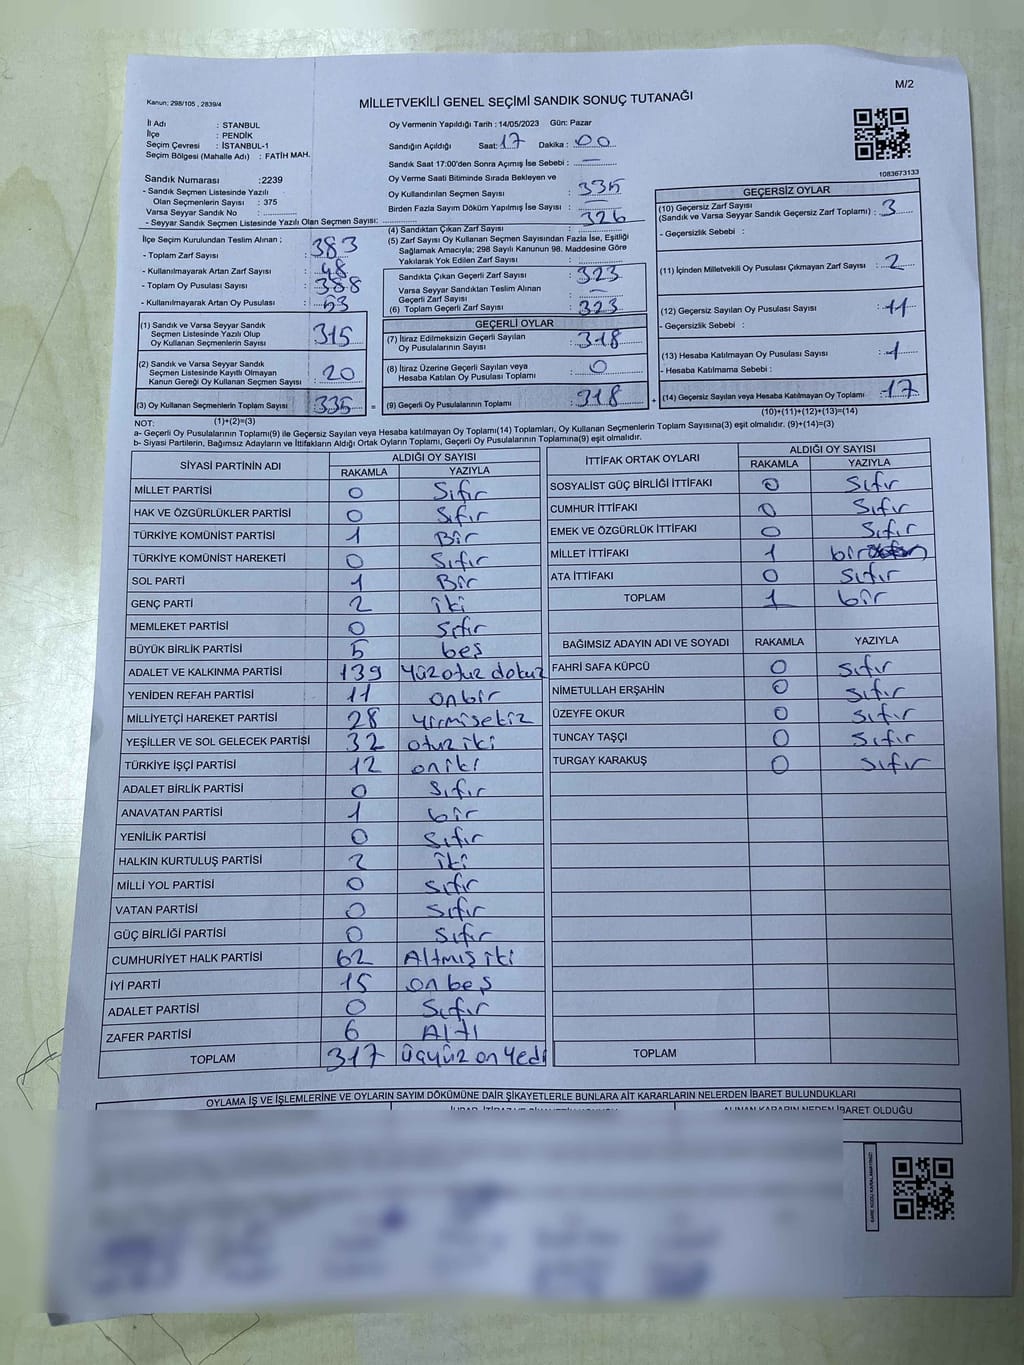 M/2
Kanun; 298/105 , 2839/4
MİLLETVEKİLİ GENEL SEÇİMİ SANDIK SONUÇ TUTANAĞI
İl Adı : STANBUL
İlçe : PENDİK
Seçim Çevresi : İSTANBUL-1
Seçim Bölgesi (Mahalle Adı) : FATİH MAH.
Sandık Numarası :2239
- Sandık Seçmen Listesinde Yazılı
Olan Seçmenlerin Sayısı : 375
Varsa Seyyar Sandık No :
- Seyyar Sandık Seçmen Listesinde Yazılı Olan Seçmen Sayısı:
İlçe Seçim Kurulundan Teslim Alınan ;
- Toplam Zarf Sayısı : 383
- Kullanılmayarak Artan Zarf Sayısı : 48
- Toplam Oy Pusulası Sayısı : 388
- Kullanılmayarak Artan Oy Pusulası : 53
(1) Sandık ve Varsa Seyyar Sandık
Seçmen Listesinde Yazılı Olup
Oy Kullanan Seçmenlerin Sayısı : 315
(2) Sandık ve Varsa Seyyar Sandık
Seçmen Listesinde Kayıtlı Olmayan
Kanun Gereği Oy Kullanan Seçmen Sayısı : 20
(3) Oy Kullanan Seçmenlerin Toplam Sayısı : 335 =
Oy Vermenin Yapıldığı Tarih : 14/05/2023 Gün: Pazar
Sandığın Açıldığı Saat: 17 Dakika : 00
Sandık Saat 17:00'den Sonra Açımış İse Sebebi : —
Oy Verme Saati Bitiminde Sırada Bekleyen ve
Oy Kullandırılan Seçmen Sayısı : 335
Birden Fazla Sayım Döküm Yapılmış İse Sayısı : —
(4) Sandıktan Çıkan Zarf Sayısı : 326
(5) Zarf Sayısı Oy Kullanan Seçmen Sayısından Fazla İse, Eşitliği
Sağlamak Amacıyla; 298 Sayılı Kanunun 98. Maddesine Göre
Yakılarak Yok Edilen Zarf Sayısı :
Sandıkta Çıkan Geçerli Zarf Sayısı : 323
Varsa Seyyar Sandıktan Teslim Alınan
Geçerli Zarf Sayısı : —
(6) Toplam Geçerli Zarf Sayısı : 323
GEÇERLİ OYLAR
(7) İtiraz Edilmeksizin Geçerli Sayılan
Oy Pusulalarının Sayısı : 318
(8) İtiraz Üzerine Geçerli Sayılan veya
Hesaba Katılan Oy Pusulası Toplamı : 0
(9) Geçerli Oy Pusulalarının Toplamı : 318 +
1083673133
GEÇERSİZ OYLAR
(10) Geçersiz Zarf Sayısı
(Sandık ve Varsa Seyyar Sandık Geçersiz Zarf Toplamı) : 3
- Geçersizlik Sebebi :
(11) İçinden Milletvekili Oy Pusulası Çıkmayan Zarf Sayısı : 2
(12) Geçersiz Sayılan Oy Pusulası Sayısı : 11
- Geçersizlik Sebebi :
(13) Hesaba Katılmayan Oy Pusulası Sayısı : 1
- Hesaba Katılmama Sebebi :
(14) Geçersiz Sayılan veya Hesaba Katılmayan Oy Toplamı : 17
NOT: (1)+(2)=(3)
(10)+(11)+(12)+(13)=(14)
a- Geçerli Oy Pusulalarının Toplamı(9) ile Geçersiz Sayılan veya Hesaba katılmayan Oy Toplamı(14) Toplamları, Oy Kullanan Seçmenlerin Toplam Sayısına(3) eşit olmalıdır. (9)+(14)=(3)
b- Siyasi Partilerin, Bağımsız Adayların ve İttifakların Aldığı Ortak Oyların Toplamı, Geçerli Oy Pusulalarının Toplamına(9) eşit olmalıdır.
SİYASİ PARTİNİN ADI ALDIĞI OY SAYISI
RAKAMLA YAZIYLA
MİLLET PARTİSİ 0 Sıfır
HAK VE ÖZGÜRLÜKLER PARTİSİ 0 Sıfır
TÜRKİYE KOMÜNİST PARTİSİ 1 Bir
TÜRKİYE KOMÜNİST HAREKETİ 0 Sıfır
SOL PARTİ 1 Bir
GENÇ PARTİ 2 iki
MEMLEKET PARTİSİ 0 Sıfır
BÜYÜK BİRLİK PARTİSİ 5 beş
ADALET VE KALKINMA PARTİSİ 139 Yüz otuz dokuz
YENİDEN REFAH PARTİSİ 11 onbir
MİLLİYETÇİ HAREKET PARTİSİ 28 Yirmisekiz
YEŞİLLER VE SOL GELECEK PARTİSİ 32 otuz iki
TÜRKİYE İŞÇİ PARTİSİ 12 oniki
ADALET BİRLİK PARTİSİ 0 Sıfır
ANAVATAN PARTİSİ 1 bir
YENİLİK PARTİSİ 0 Sıfır
HALKIN KURTULUŞ PARTİSİ 2 iki
MİLLİ YOL PARTİSİ 0 Sıfır
VATAN PARTİSİ 0 Sıfır
GÜÇ BİRLİĞİ PARTİSİ 0 Sıfır
CUMHURİYET HALK PARTİSİ 62 Altmış iki
İYİ PARTİ 15 on beş
ADALET PARTİSİ 0 Sıfır
ZAFER PARTİSİ 6 Altı
TOPLAM 317 üçyüz on yedi
İTTİFAK ORTAK OYLARI ALDIĞI OY SAYISI
RAKAMLA YAZIYLA
SOSYALİST GÜÇ BİRLİĞİ İTTİFAKI 0 Sıfır
CUMHUR İTTİFAKI 0 Sıfır
EMEK VE ÖZGÜRLÜK İTTİFAKI 0 Sıfır
MİLLET İTTİFAKI 1 bir
ATA İTTİFAKI 0 Sıfır
TOPLAM 1 bir
BAĞIMSIZ ADAYIN ADI VE SOYADI RAKAMLA YAZIYLA
FAHRİ SAFA KÜPCÜ 0 Sıfır
NİMETULLAH ERŞAHİN 0 Sıfır
ÜZEYFE OKUR 0 Sıfır
TUNCAY TAŞÇI 0 Sıfır
TURGAY KARAKUŞ 0 Sıfır
TOPLAM
OYLAMA İŞ VE İŞLEMLERİNE VE OYLARIN SAYIM DÖKÜMÜNE DAİR ŞİKAYETLERLE BUNLARA AİT KARARLARIN NELERDEN İBARET BULUNDUKLARI
ALINAN KARARIN NEDEN İBARET OLDUĞU